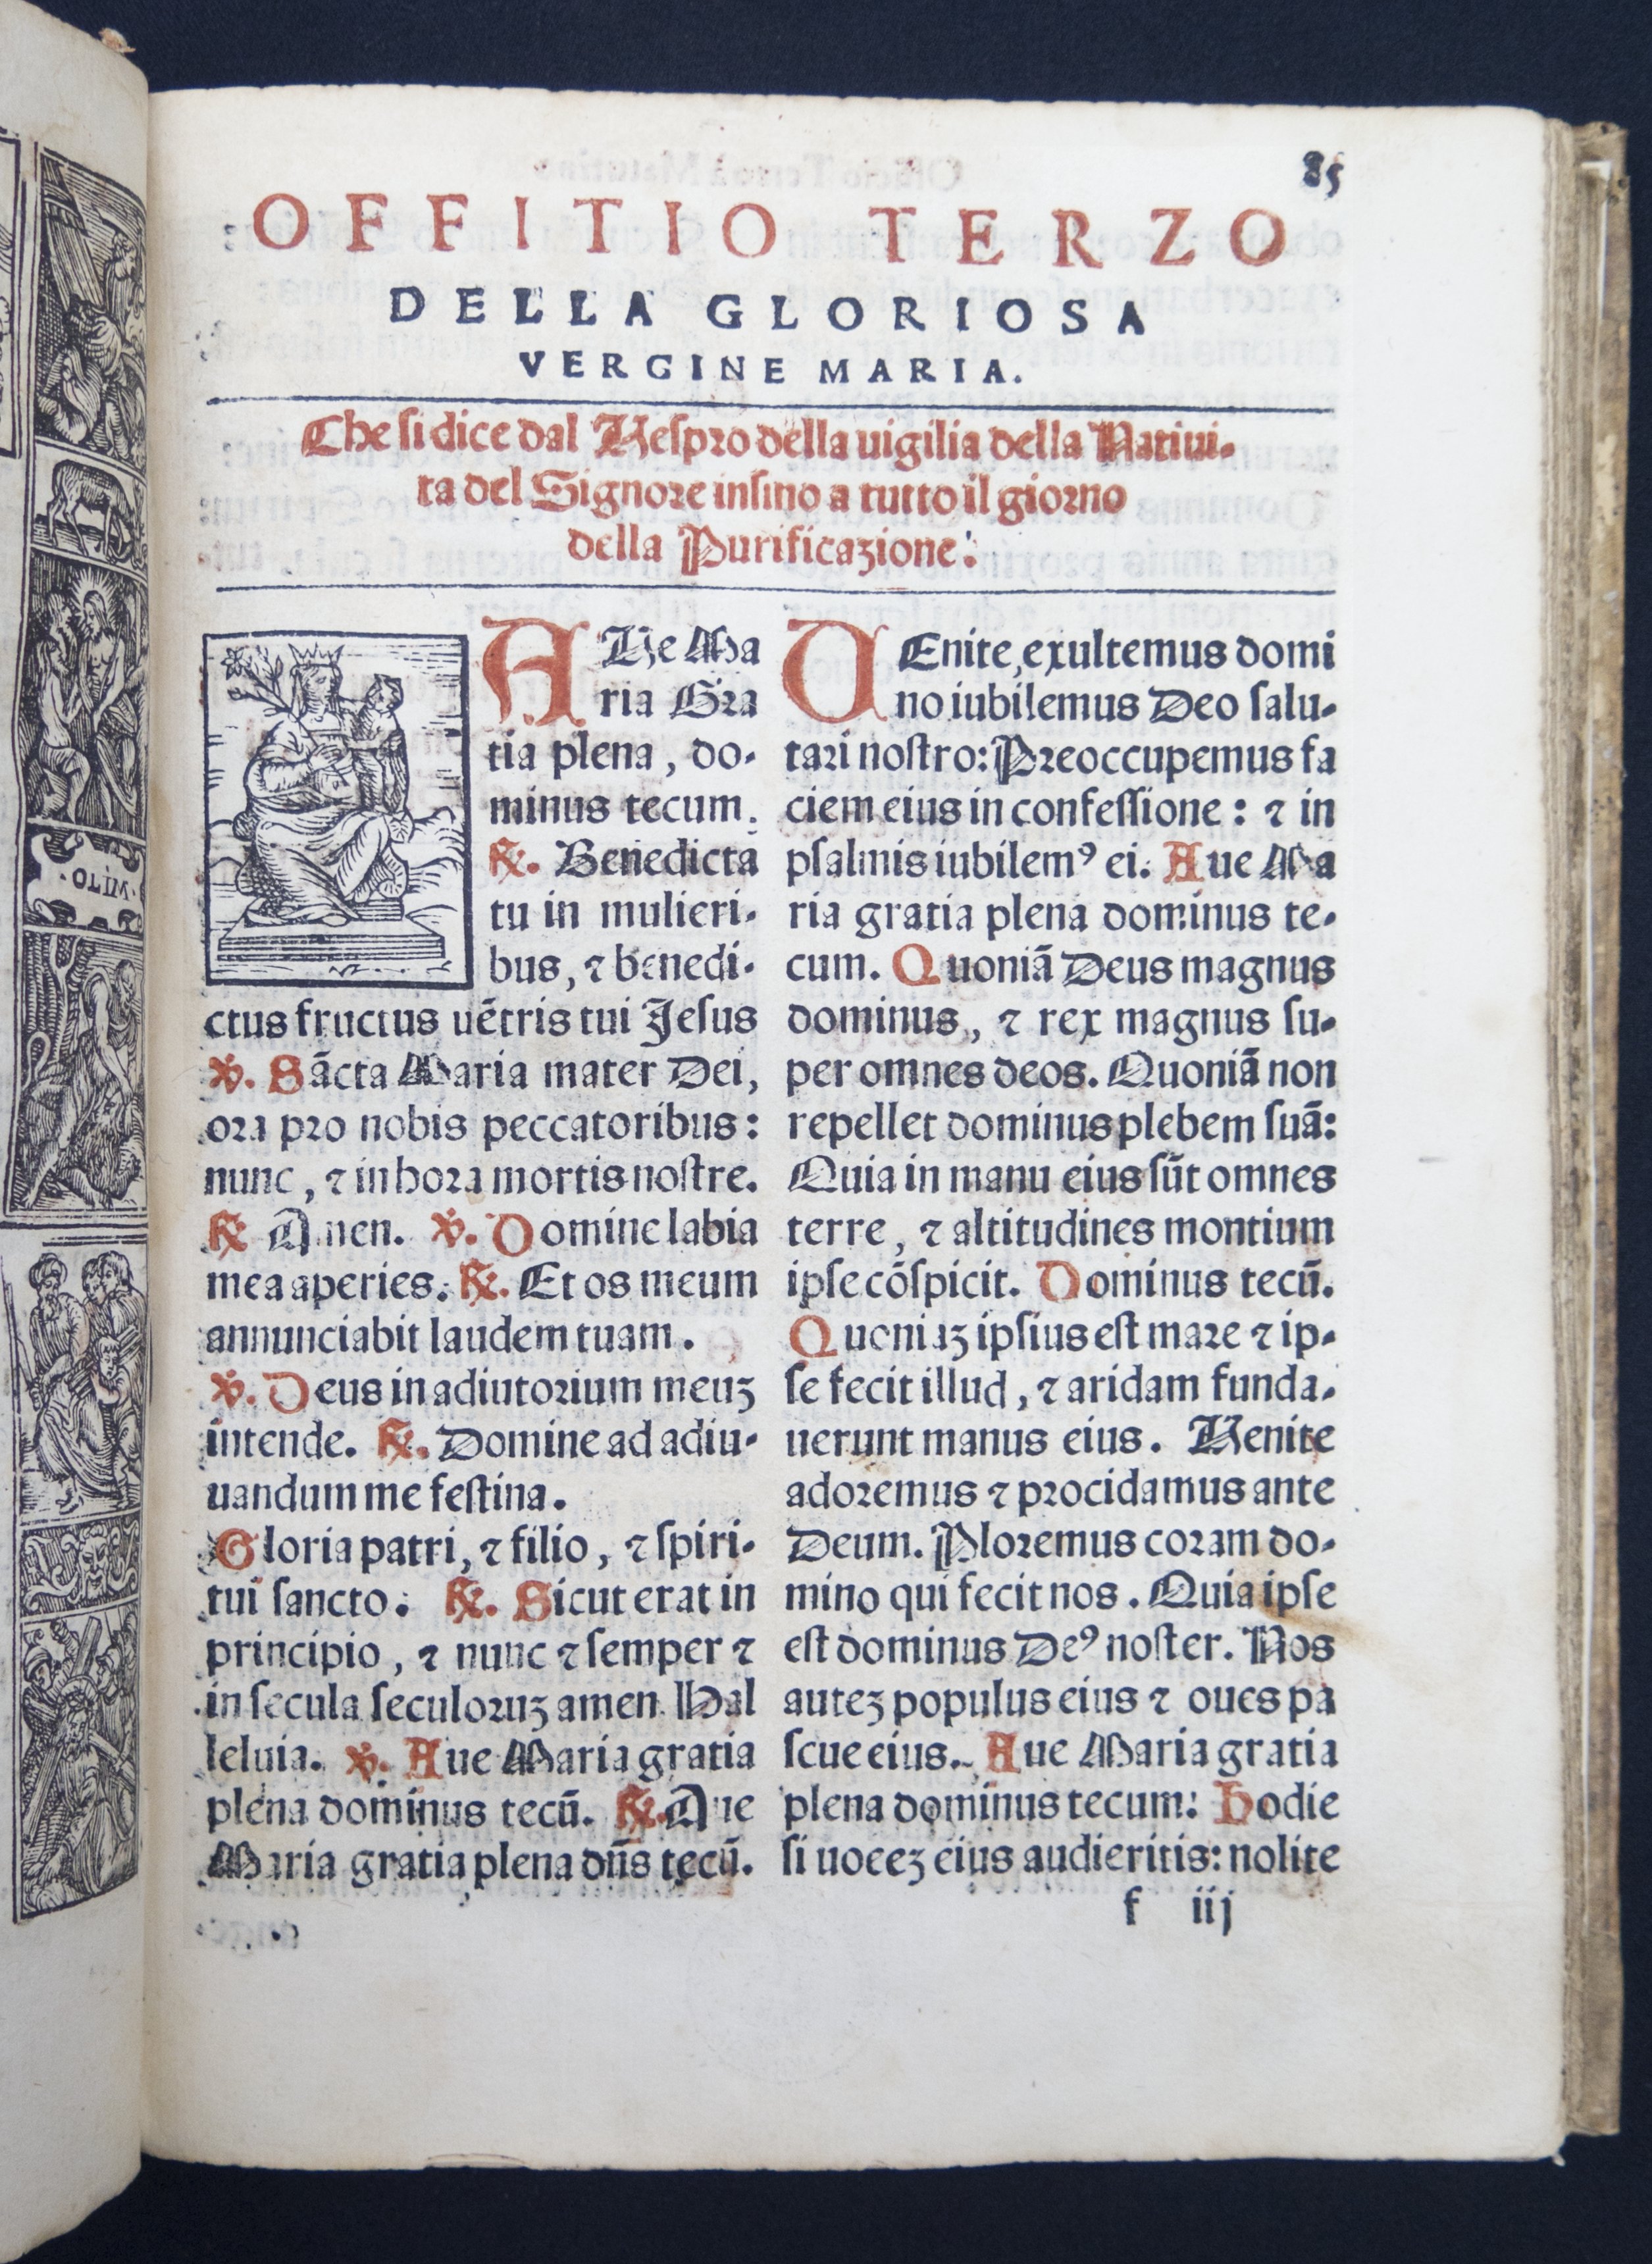 85
OFFITIO TERZO
DELLA GLORIOSA
VERGINE MARIA.
Che si dice dal Vespro della uigilia della Natiui-
ta del Signore insino a tutto il giorno
della Purificazione:
AVe Ma
ria Gra
tia plena, do-
minus tecum.
℟. Benedicta
tu in mulieri-
bus, ⁊ benedi-
ctus fructus uẽtris tui Jesus
℣. Sãcta Maria mater Dei,
ora pro nobis peccatoribus:
nunc, ⁊ in hora mortis nostre.
℟ Amen. ℣. Domine labia
mea aperies. ℟. Et os meum
annunciabit laudem tuam.
℣. Deus in adiutorium meuꝫ
intende. ℟. Domine ad adiu-
uandum me festina.
Gloria patri, ⁊ filio, ⁊ spiri-
tui sancto: ℟. Sicut erat in
principio, ⁊ nunc ⁊ semper ⁊
in secula seculoruꝫ amen. Hal
leluia. ℣. Aue Maria gratia
plena dominus tecũ. ℟. Aue
Maria gratia plena dñs tecũ.
VEnite, exultemus domi
no iubilemus Deo salu-
tari nostro: Preoccupemus fa
ciem eius in confessione: ⁊ in
psalmis iubilemꝰ ei. Aue Ma
ria gratia plena dominus te-
cum. Quoniã Deus magnus
dominus, ⁊ rex magnus su-
per omnes deos. Quoniã non
repellet dominus plebem suã:
Quia in manu eius sũt omnes
terre, ⁊ altitudines montium
ipse cõspicit. Dominus tecũ.
Quoniaꝫ ipsius est mare ⁊ ip-
se fecit illud, ⁊ aridam funda-
uerunt manus eius. Venite
adoremus ⁊ procidamus ante
Deum. Ploremus coram do-
mino qui fecit nos. Quia ipse
est dominus Deꝰ noster. Nos
auteꝫ populus eius ⁊ oues pa
scue eius. Aue Maria gratia
plena dominus tecum: Hodie
si uoceꝫ eius audieritis: nolite
f iij